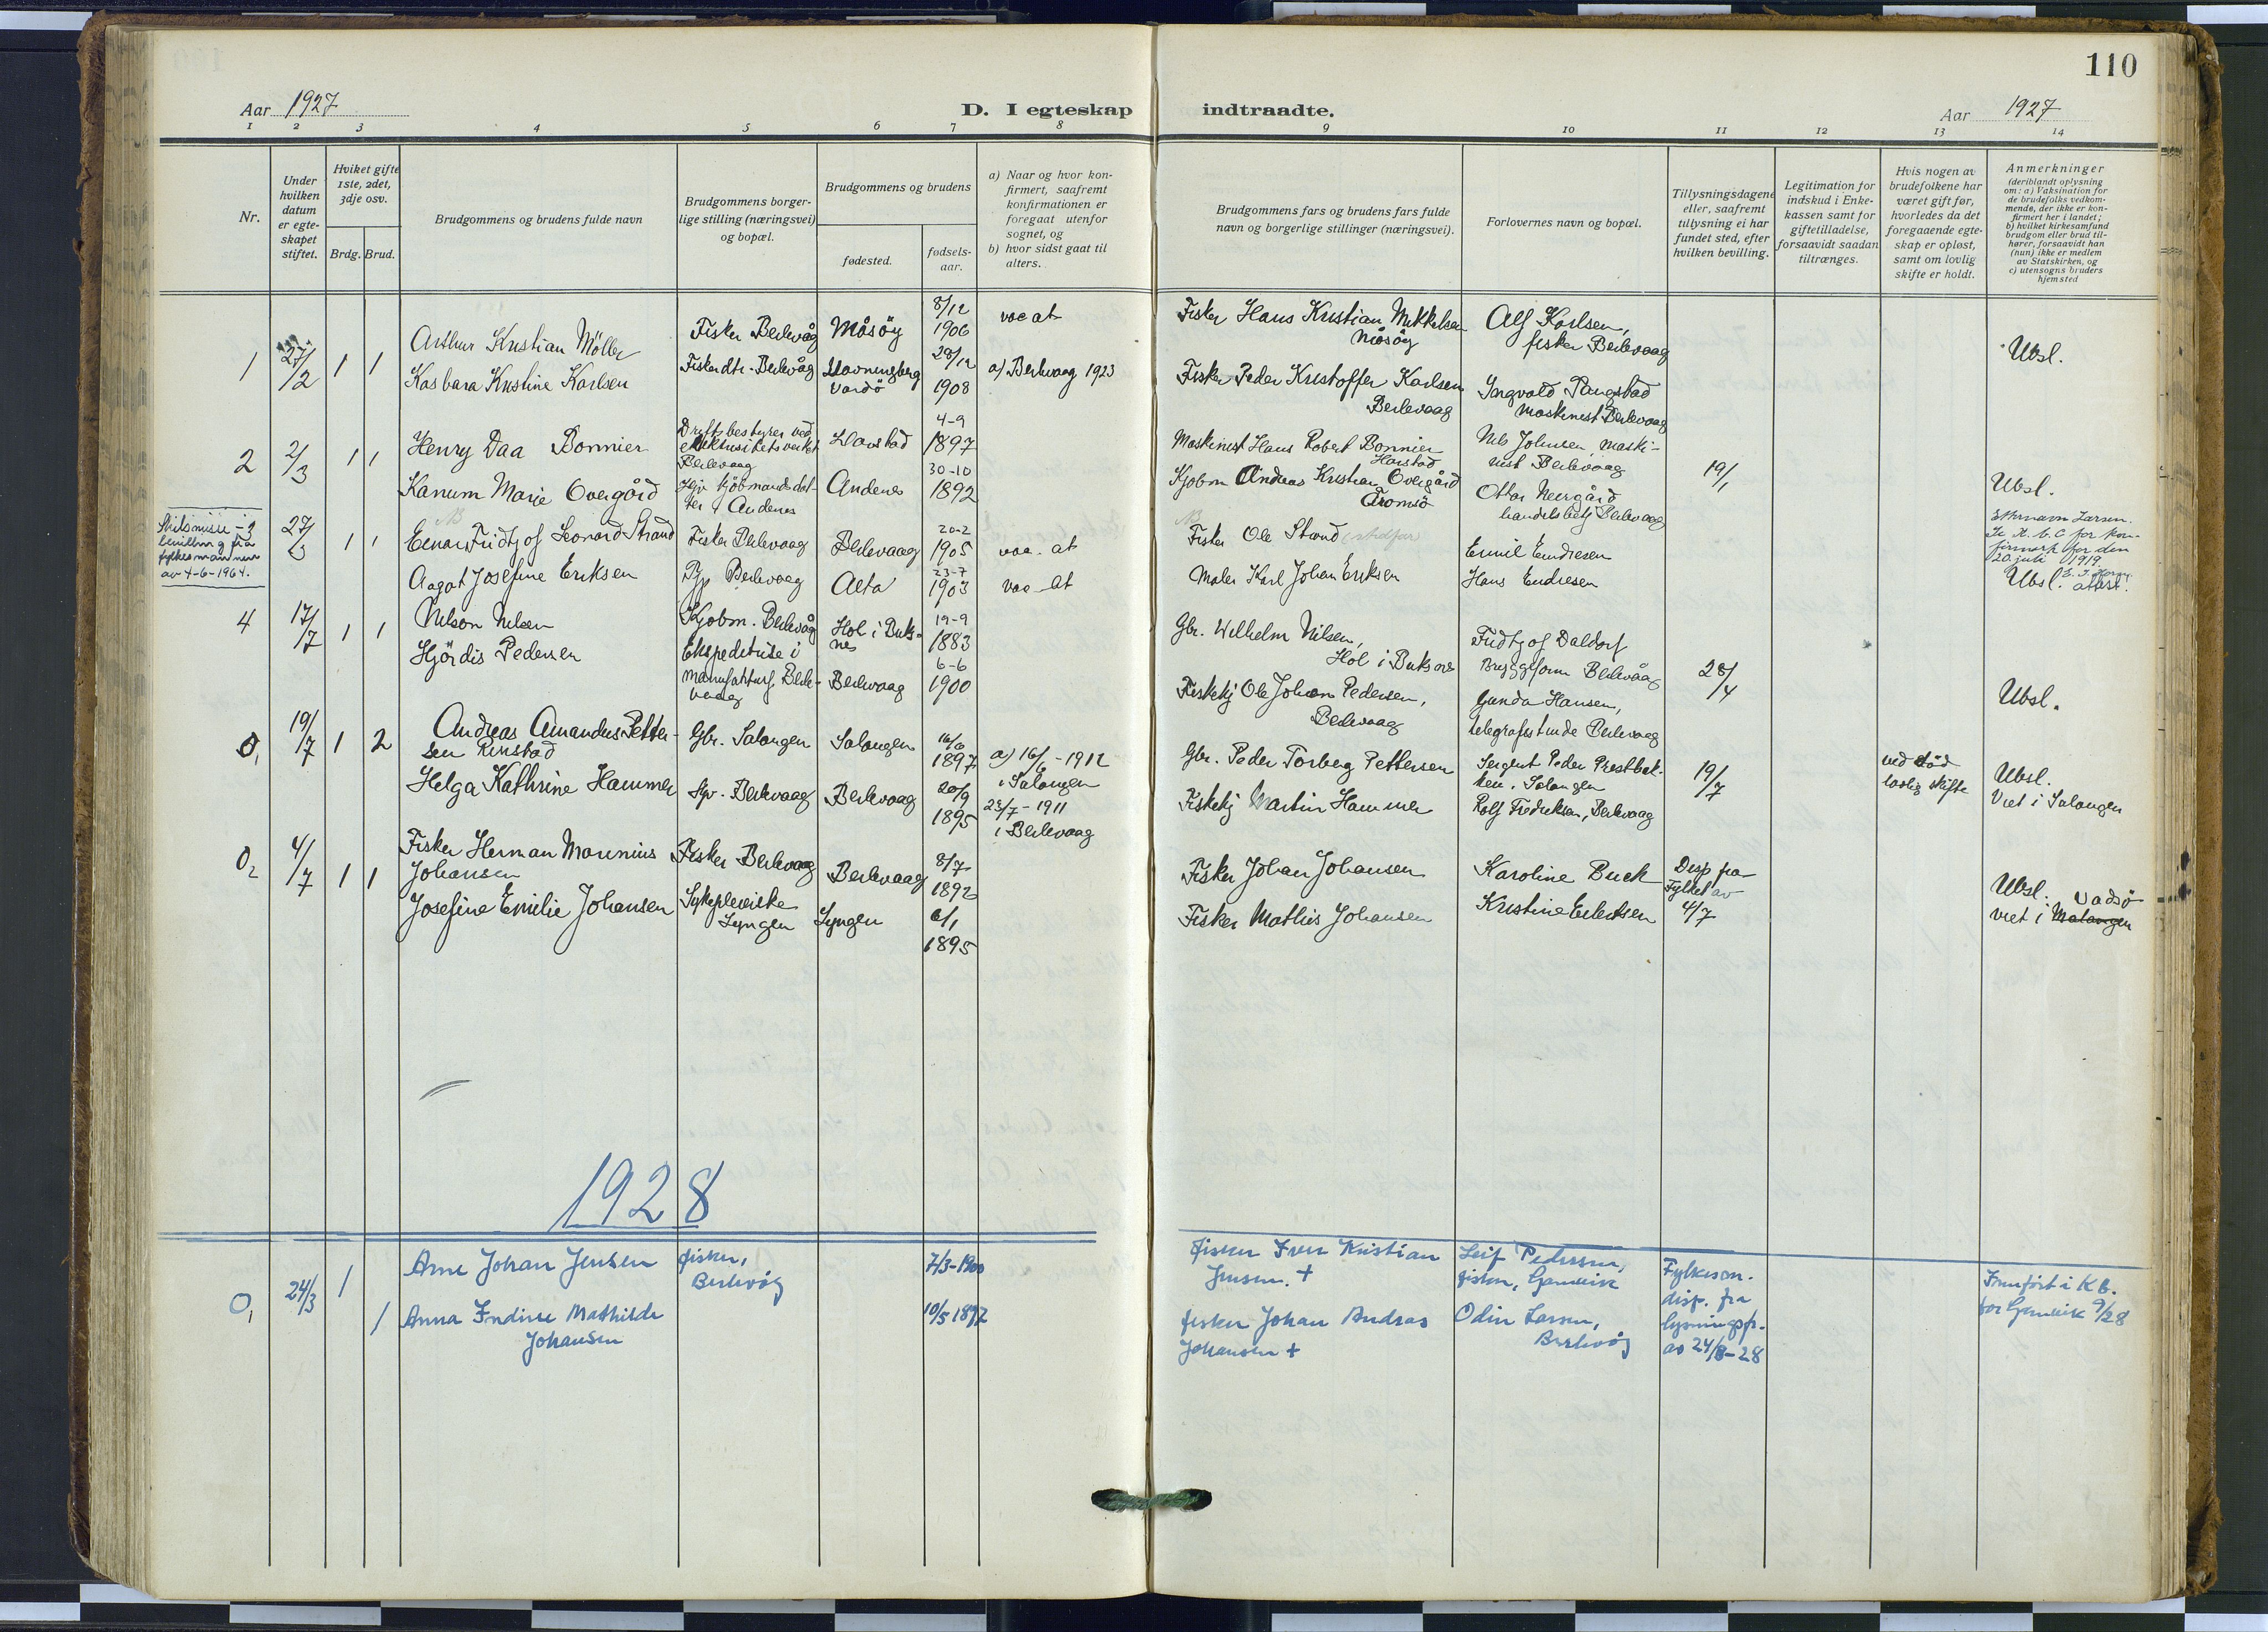 110
Aar 1927
D. I egteskap indtraadte.
Aar 1927
1 2 3 4 5 6 7 8 9 10 11 12 13 14
Nr.
Under
hvilken
datum
er egte-
skapet
stiftet.
Hviket gifte
1ste, 2det,
3dje osv.
Brdg. Brud.
Brudgommens og brudens fulde navn
Brudgommens borger-
lige stilling (næringsvei)
og bopæl.
Brudgommens og brudens
fødested.
fødsels-
aar.
a) Naar og hvor kon-
firmert, saafremt
konfirmationen er
foregaat utenfor
sognet, og
b) hvor sidst gaat til
alters.
Brudgommens fars og brudens fars fulde
navn og borgerlige stillinger (næringsvei).
Forlovernes navn og bopæl.
Tillysningsdagene
eller, saafremt
tillysning ei har
fundet sted, efter
hvilken bevilling.
Legitimation for
indskud i Enke-
kassen samt for
giftetilladelse,
forsaavidt saadan
tiltrænges.
Hvis nogen av
brudefolkene har
været gift før,
hvorledes da det
foregaaende egte-
skap er opløst,
samt om lovlig
skifte er holdt.
Anmerkninger
(deriblandt oplysning
om: a) Vaksination for
de brudefolks vedkom-
mende, der ikke er kon-
firmert her i landet;
b) hvilket kirkesamfund
brudgom eller brud til-
hører, forsaavidt han
(hun) ikke er medlem
av Statskirken, og
c) utensogns bruders
hjemsted
1 27/2 1 1
Arthur Kristian Möller
Fisker Berlevåg
Måsöy
8/12
1906
vac at
Fisker Hans Kristian Mikkelsen
Måsöy
Alf Karlsen,
fisker Berlevaag
Ubsl.
Kasbara Kristine Karlsen
Fiskerdtr. Berlevåg
Havningberg
Vardö
28/12
1908
a) Berlevaag 1923
Fisker Peder Kristoffer Karlsen
Berlevaag
Ingvald Tangstad
Maskinist Berlevaag
2 2/3 1 1
Henry Daa Bonnier
Driftsbestyrer ved
elektrisitetsverket
Berlevaag
Harstad
4-9
1897
Maskinist Hans Robert Bonnier
Harstad
Nils Johnsen, maski-
nist Berlevaag
19/1
Ubsl.
Kanum Marie Overgård
Hjv. kjöbmandsdat-
ter, Andenes
Andenes
30-10
1892
Kjobm Andreas Kristian Overgård
Tromsö
Ottar Neergård
handelsbetj Berlevaag
Skilsmisse-
bevilling fra
fylkesmannen
av 4-6-1964.
3 27/3 1 1
NB
Einar Fridtjof Leonard Strand
Fisker Berlevaag
Berlevaag
20-2
1905
vac. at
NB
Fisker Ole Strand (stedfar
Emil Endresen
Etternavn Larsen.
Se K. b. C for kon-
firmerte for den
20. juli 1919.
Ubsl. attest.
Aagot Josefine Eriksen
Pige Berlevaag
Alta
23-7
1903
vac at
Maler Karl Johan Eriksen
Hans Endresen
4 17/7 1 1
Nelson Nilsen
Kjobm. Berlevåg
Hol i Buks-
nes
19-9
1883
Gbr. Wilhelm Nilsen,
Hol i Buksnes
Fridtjof Daldorf
Bryggeform Berlevåg
28/4
Ubsl.
Hjördis Pedersen
Ekspeditrise i
manufakturf. Berle-
vaag
Berlevaag
6-6
1900
Fiskekj Ole Johan Pedersen,
Berlevaag
Gunda Hansen,
telegrafistinde Berlevaag
0, 19/7 1 2
Andreas Amandus Petter-
sen Rinstad
Gbr. Salangen
Salangen
16/6
1897
a) 16/6-1912
i Salangen
Gbr. Peder Torberg Pettersen
Sergent Peder Prestbak-
ken. Salangen
19/7
ved död
lovlig skifte
Ubsl.
Viet i Salangen
Helga Kathrine Hammer
Hjv. Berlevaag
Berlevaag
20/9
1895
23/7-1911
i Berlevaag
Fiskekj Martin Hammer
Rolf Fredriksen, Berlevaag
02 4/7 1 1
Fisker Herman Marenius
Johansen
Fisker Berlevaag
Berlevaag
8/7
1892
Fisker Johan Johansen
Karoline Buck
Disp fra
Fylket av
4/7
Ubsl. Vadsö
viet i Malangen
Josefine Emilie Johansen
Sykepleierske
Lyngen
Lyngen
6/1
1895
Fisker Mathis Johansen
Kristine Eilertsen
1928
0, 24/3 1
Arne Johan Jensen
fisker,
Berlevåg
7/3-1900
fisker Iver Kristian
Jensen. +
Leif Pedersen,
fisker, Gamvik
Fylkesm.
disp. fra
lysningsfr.
av 24/3-28
Innfört i Kb.
for Gamvik 9/28
1 Anna Indine Mathilde
Johansen
10/5 1897
fisker Johan Andras
Johansen +
Odin Larsen,
Berlevåg